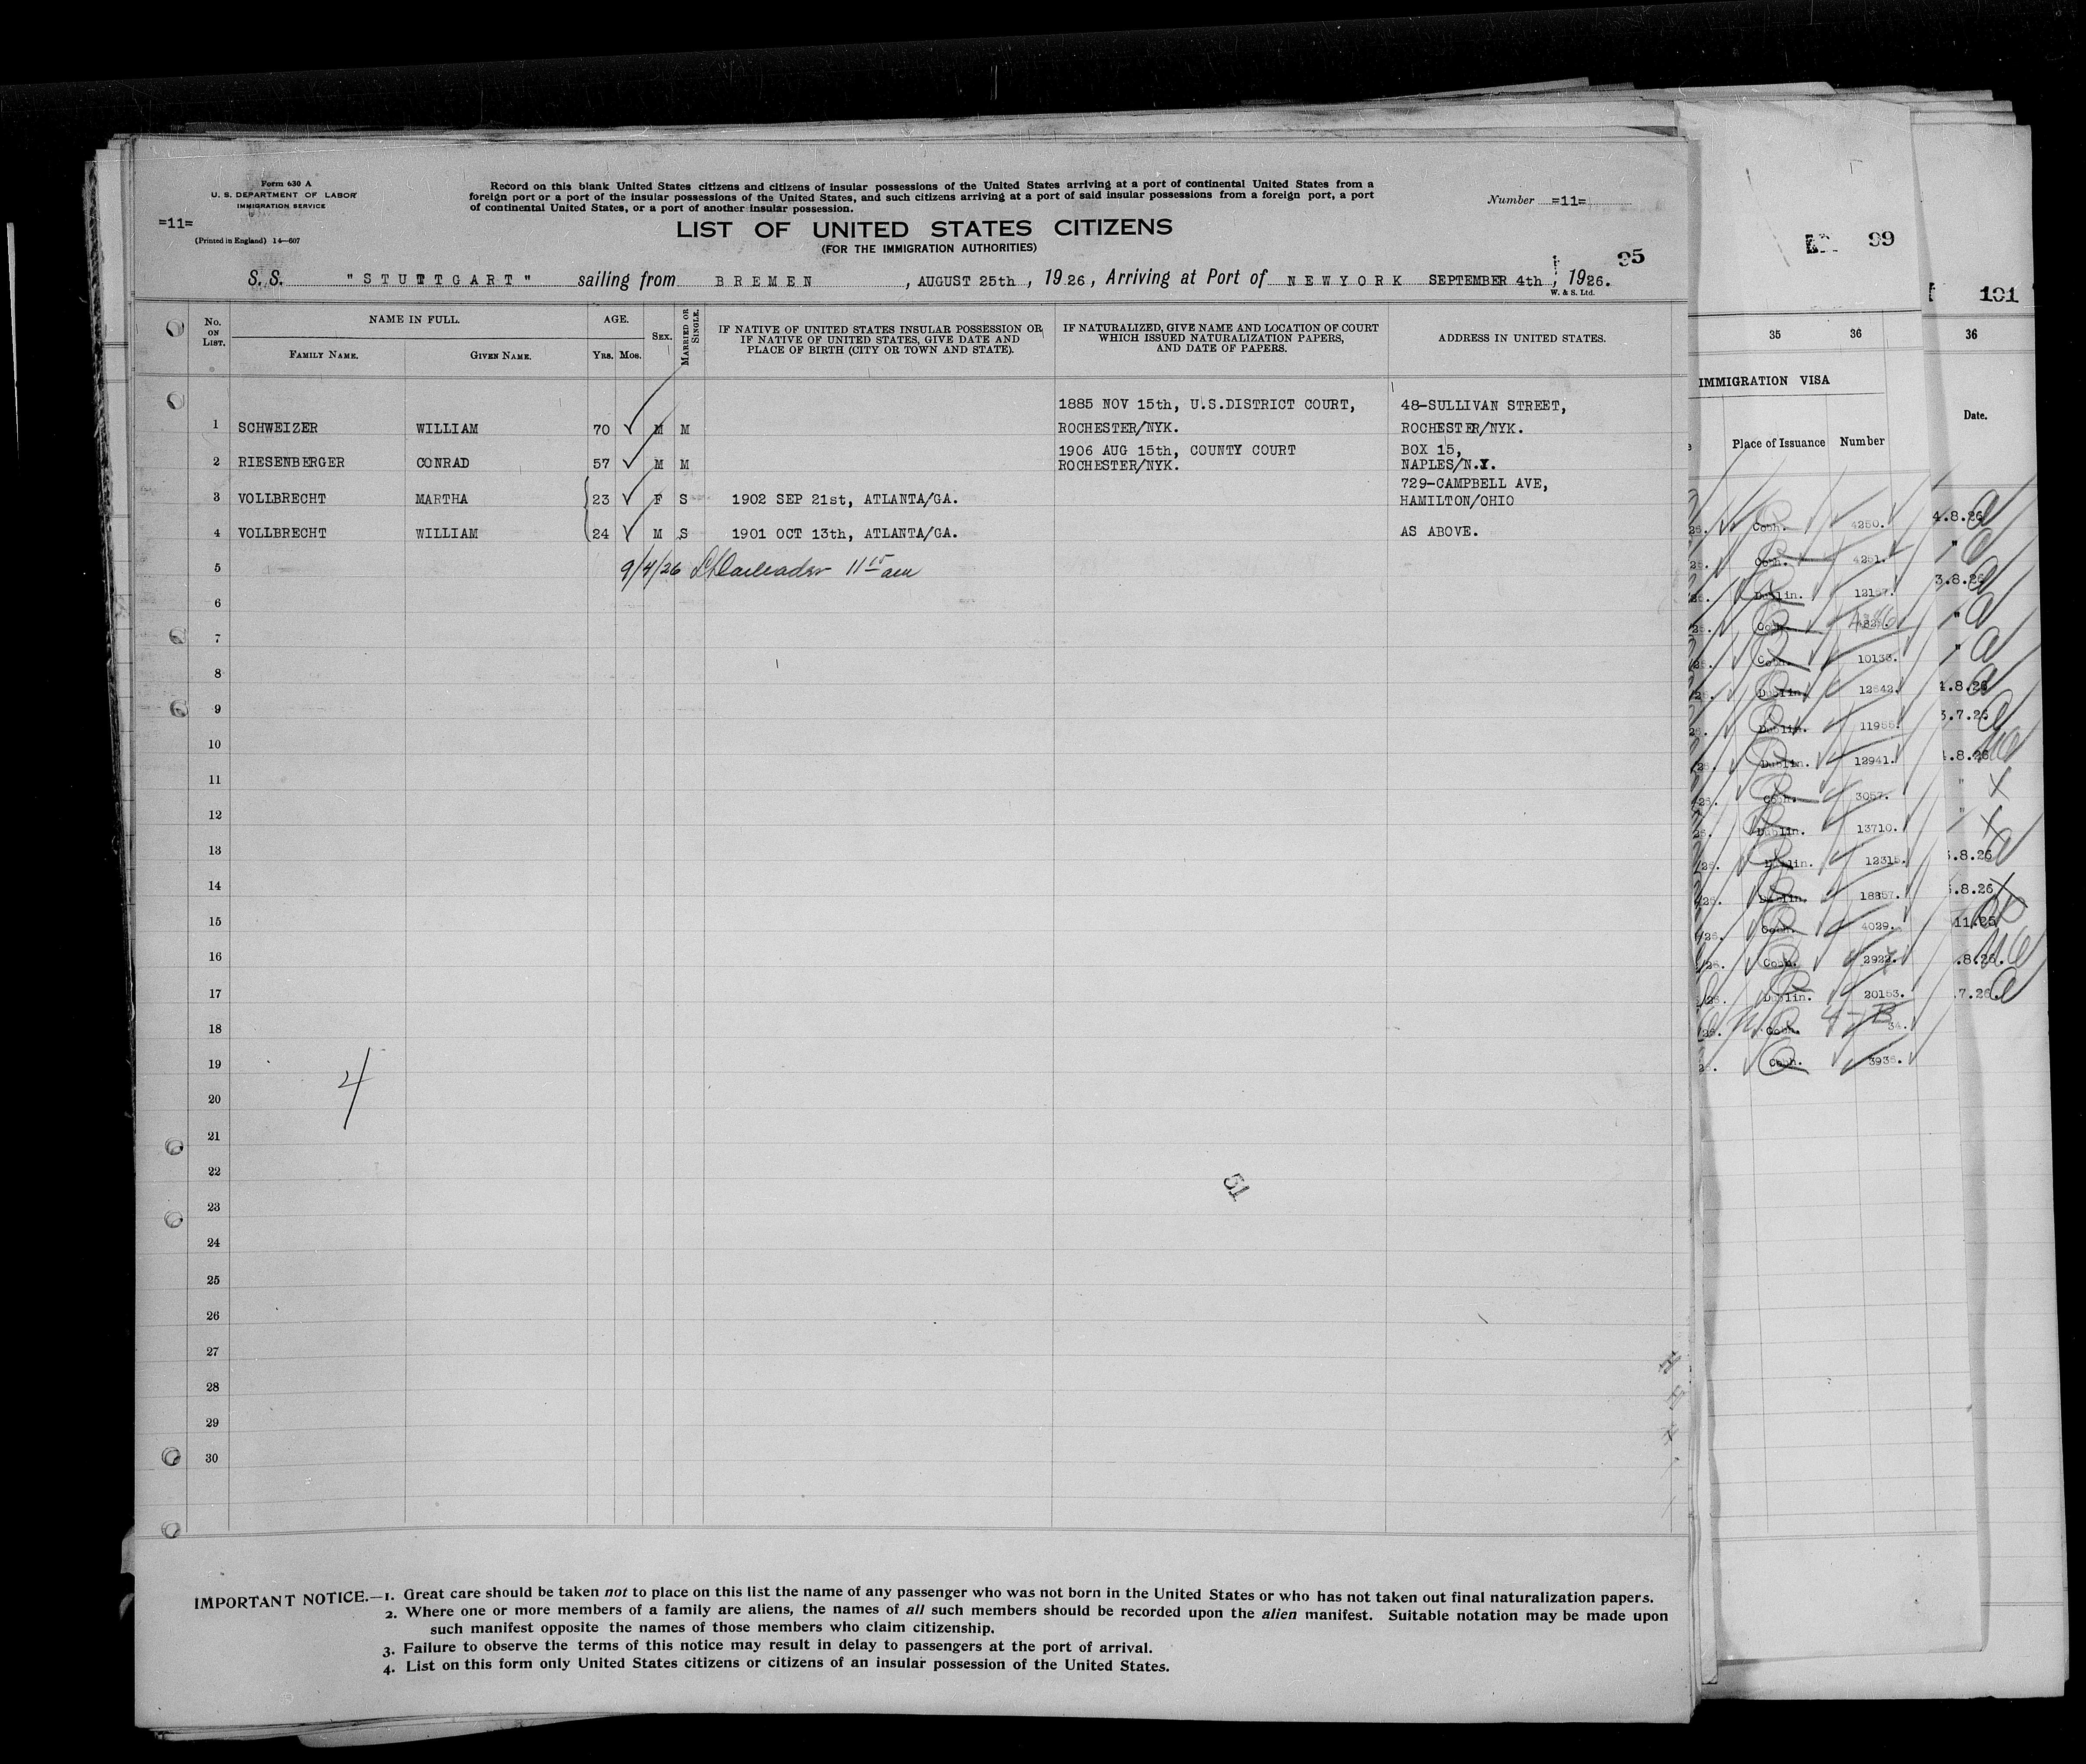 Form 630 A
U. S. DEPARTMENT OF LABOR
IMMIGRATION SERVICE
=11=
(Printed in England) 14—607
Record on this blank United States citizens and citizens of insular possessions of the United States arriving at a port of continental United States from a
foreign port or a port of the insular possessions of the United States, and such citizens arriving at a port of said insular possessions from a foreign port, a port
of continental United States, or a port of another insular possession.
Number =11=
LIST OF UNITED STATES CITIZENS
(FOR THE IMMIGRATION AUTHORITIES)
95
S.S. "STUTTGART" sailing from BREMEN, AUGUST 25th, 1926, Arriving at Port of NEWYORK SEPTEMBER 4th, 1926.
W. & S. Ltd.
No. ON LIST.
NAME IN FULL.
FAMILY NAME. GIVEN NAME.
AGE.
Yrs. Mos.
SEX.
MARRIED OR SINGLE.
IF NATIVE OF UNITED STATES INSULAR POSSESSION OR
IF NATIVE OF UNITED STATES, GIVE DATE AND
PLACE OF BIRTH (CITY OR TOWN AND STATE).
IF NATURALIZED, GIVE NAME AND LOCATION OF COURT
WHICH ISSUED NATURALIZATION PAPERS,
AND DATE OF PAPERS.
ADDRESS IN UNITED STATES.
1885 NOV 15th, U.S.DISTRICT COURT, 48-SULLIVAN STREET,
1 SCHWEIZER WILLIAM 70 M M ROCHESTER/NYK. ROCHESTER/NYK.
1906 AUG 15th, COUNTY COURT BOX 15,
2 RIESENBERGER CONRAD 57 M M ROCHESTER/NYK. NAPLES/N.Y.
729-CAMPBELL AVE,
3 VOLLBRECHT MARTHA 23 F S 1902 SEP 21st, ATLANTA/GA. HAMILTON/OHIO
4 VOLLBRECHT WILLIAM 24 M S 1901 OCT 13th, ATLANTA/GA. AS ABOVE.
5 9/4/26 11 15 am
6
7
8
9
10
11
12
13
14
15
16
17
18
19
4
20
21
22
51
23
24
25
26
27
28
29
30
IMPORTANT NOTICE.—1. Great care should be taken not to place on this list the name of any passenger who was not born in the United States or who has not taken out final naturalization papers.
2. Where one or more members of a family are aliens, the names of all such members should be recorded upon the alien manifest. Suitable notation may be made upon
such manifest opposite the names of those members who claim citizenship.
3. Failure to observe the terms of this notice may result in delay to passengers at the port of arrival.
4. List on this form only United States citizens or citizens of an insular possession of the United States.
99
35 36
IMMIGRATION VISA
Place of Issuance Number
Cobh. 4250.
Cobh. 4251.
Dublin.
Cobh.
Cobh. 10133.
Dublin. 12642.
Dublin. 11955.
Dublin. 12941.
Cobh. 3057.
Dublin. 13710.
Dublin. 12315.
Dublin. 18857.
Cobh. 4029.
Cobh. 2922.
Dublin. 20153.
Cobh. 34.
Cobh. 3936.
101
36
Date.
4.8.26
"
3.8.26
"
"
4.8.26
3.7.26
4.8.26
"
"
.8.26
.8.26
11.25
.8.26.
.7.26